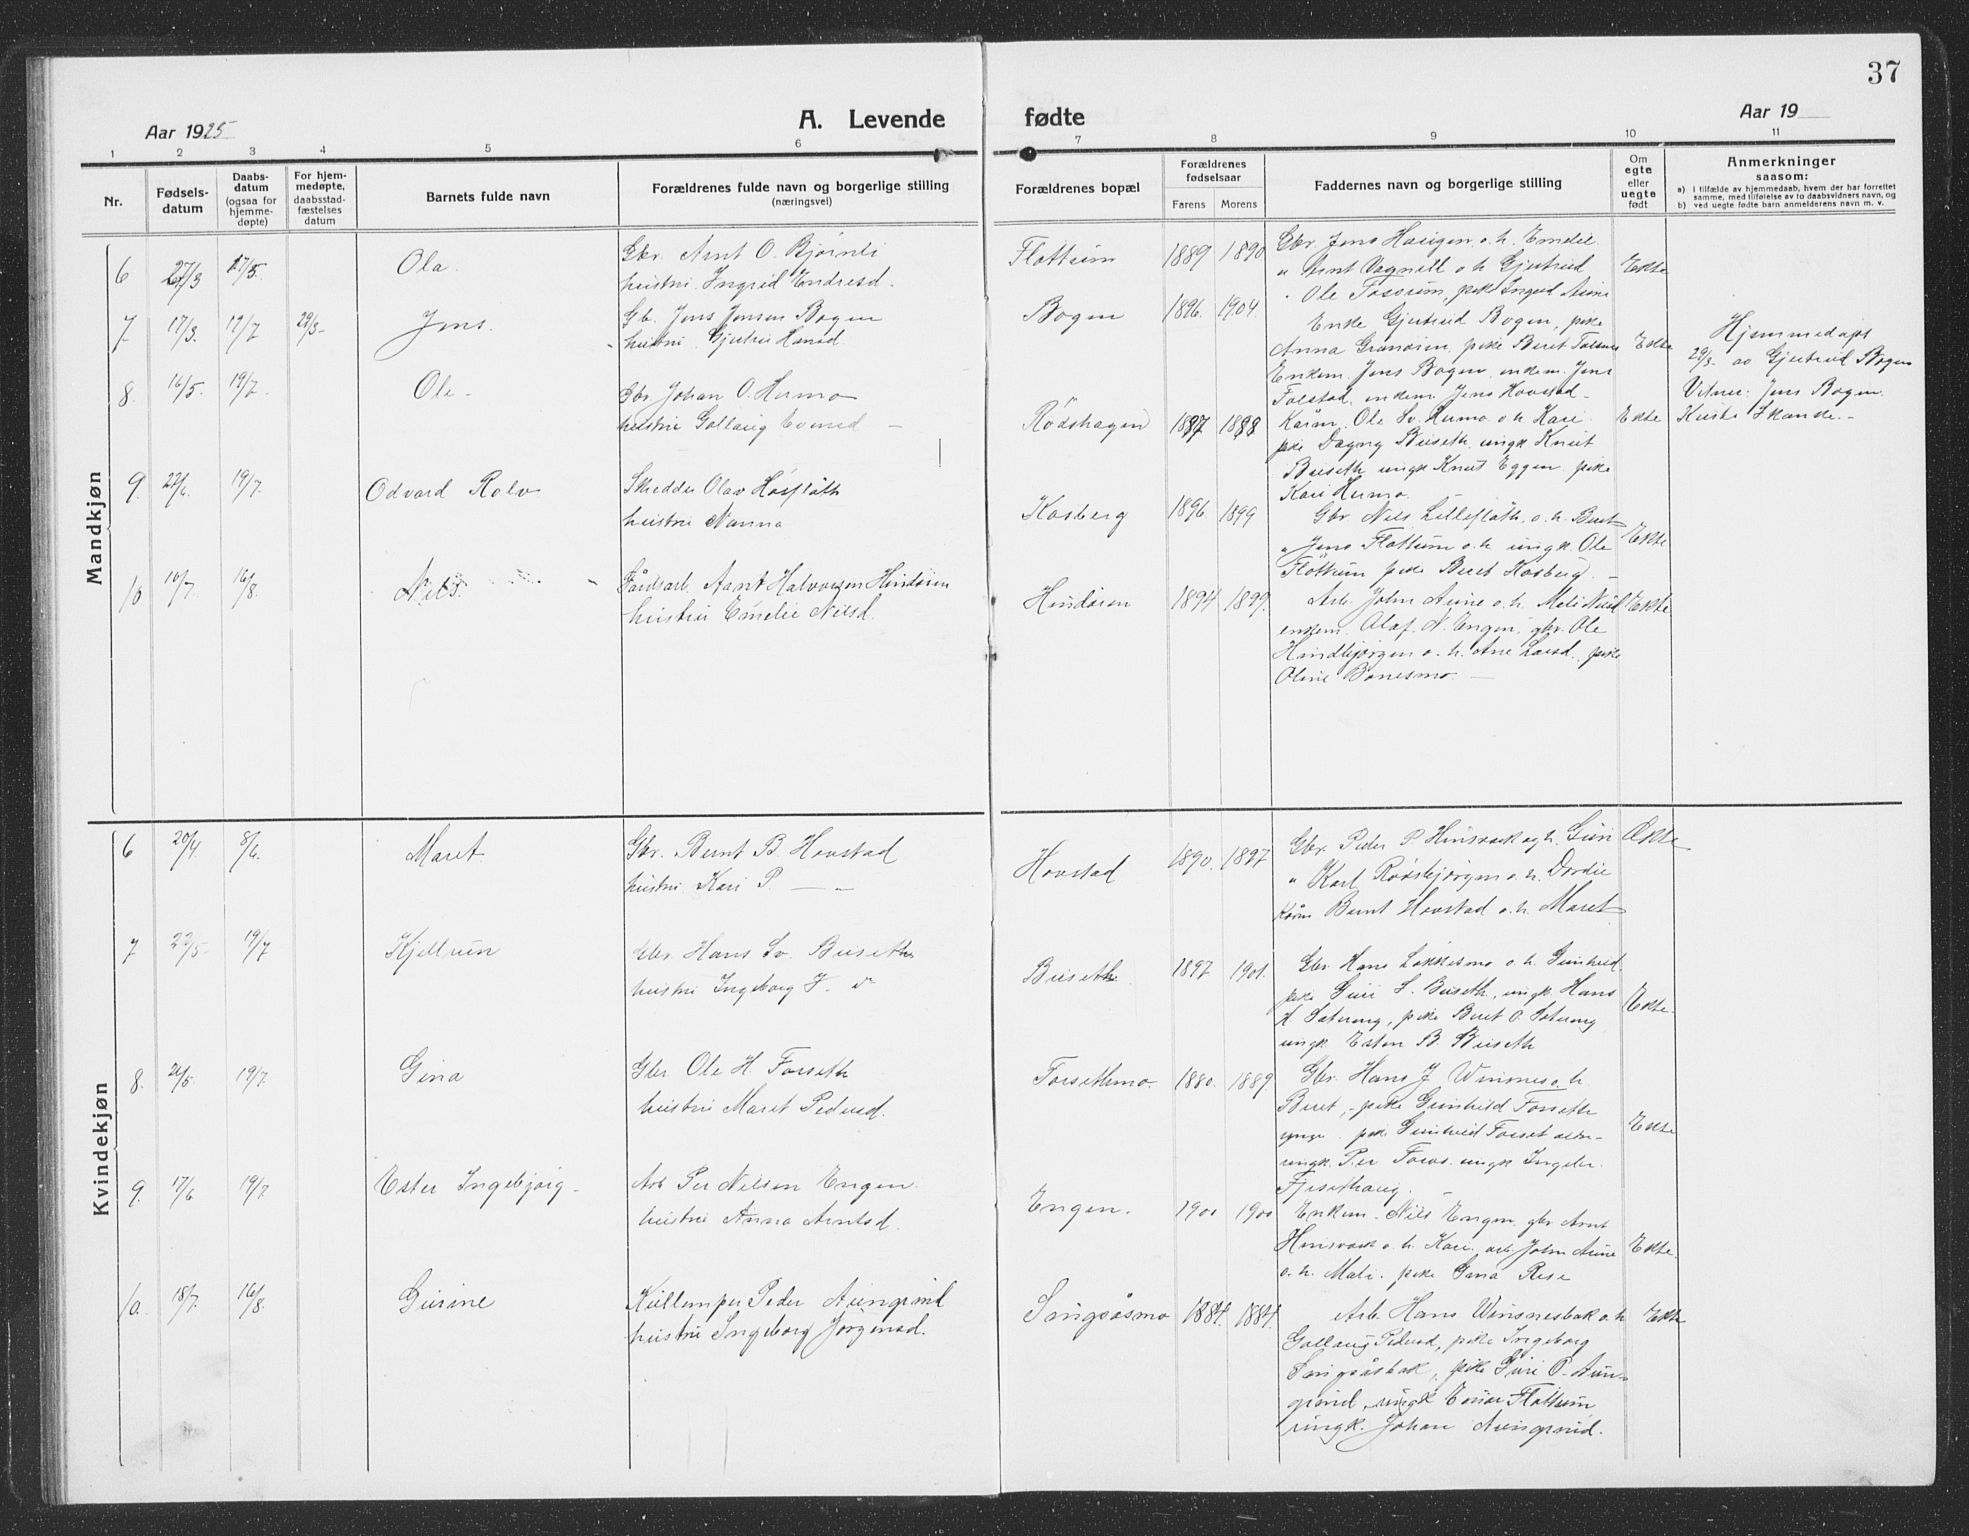 37
Aar 1925
A. Levende
fødte
Aar 19
1 2 3 4 5 6 7 8 9 10 11
Nr.
Fødsels-
datum
Daabs-
datum
(ogsaa for
hjemme-
døpte)
For hjem-
medøpte,
daabsstad-
fæstelses
datum
Barnets fulde navn
Forældrenes fulde navn og borgerlige stilling
(næringsvei)
Forældrenes bopæl
Forældrenes
fødselsaar
Farens Morens
Faddernes navn og borgerlige stilling
Om
egte
eller
uegte
født
Anmerkninger
saasom:
a) i tilfælde av hjemmedaab, hvem der har forrettet
samme, med tilføielse av to daabsvidners navn, og
b) ved uegte fødte barn anmelderens navn m. v.
Mandkjøn
6 27/3 17/5. Ola.
Gbr. Arnt O. Bjørnli
hustru Ingrid Endresd.
Flottum 1889 1890
Gbr. Jens Haugen o. h. Emelie
" Arnt Vagnill o. h. Gjertrud
" Ole Fossum, pike Ingrid Aune
Ekte
7 17/3. 19/7 29/3- Jens.
Gb. Jens Jensen Bogen
hustru Gjertru Hansd.
Bogen 1896. 1904
Enke Gjertrud Bogen, pike
Anna Granøien, pike Beret Folstad
Enkem. Jens Bogen, enkem. Jens
Folstad, enkem. Jens Hovstad-
Ekte
Hjemmedøpt
29/3- av Gjertrud Bogen
Vitner: Jens Bogen.
Kirsti Skande.-
8. 16/5. 19/7. Ole-
Gbr. Johan O. Hermo
hustru Gollaug Evensd -
Rødshagen 1887 1888
Kårm. Ole Sv. Hermo o. h. Kari
pike Dagny Buseth, ungk Knut
Buseth ungk Knut Eggen, pike
Kari Hermo.
Ekte
9. 22/6. 19/7. Odvard Rolv
Skredder Olav Hosfløth
hustru Nanna
Kosberg 1896. 1899
Gbr. Nils Lilleflåth, o. h. Beret
" Jens Flottum o. h. ungk. Ole
Flottum pike Beret Kosberg. -
Ekte
10 10/7. 16/8. Nils.
Arnt Halvorsen Hindøien
hustru Emelie Nilsd.
Hindøien 1894 1899.
Arb. John Aune o. h. Mali Nilsd
enkem. Olaf N. Engen, gbr. Ole
Hindbjørgen o. h. Ane Larsd., pike
Oline Bonesmo. -
Ekte
Kvindekjøn
6 20/4. 8/6. Maret.
Gbr. Bernt B. Hovstad
hustru Kari P. — "
Hovstad 1890. 1897
Gbr. Peder P. Hinsvark og h. Guri
" Karl Rødsbjørgen o. h. Dordie
Kårm Bernt Hovstad o. h. Maret
Ekte
7 22/5- 19/7 Kjellrun
Gbr. Hans Sv. Buseth
hustru Ingeborg J. do
Buseth. 1897. 1901.
Gbr. Hans Løkkesmo o. h. Gunhild.
pike Guri S. Buseth, ungk. Hans
H. Sæterung, pike Beret O. Sæterung
ungk Esten B. Buseth
Ekte.
8. 26/5. 19/7. Gina
Gbr Ole H. Forseth
hustru Maret Pedersd.
Forsethmo. 1880. 1889.
Gbr. Hans J. Winsnes o. h.
Beret, - pike Gunhild Forseth
yngr. pike Gunhild Forset eldre-
ungk. Per Foros. ungk Ingebr.
Fjesethaug. -
Ekte
9. 17/6 19/7 Ester Ingebjørg-
Arb Per Nilsen Engen.
hustru Anna Arntsd.
Engen. 1900 1900
Enkem. Nils Engen, gbr Arnt
Hinsvark o. h. Kari, arb. John Aune
o. h. Mali. pike Gina Rese
Ekte.
10. 18/7. 16/8. Gurine
Kullemper Peder Aungrind
hustru Ingeborg Jørgensd.
Singsåsmo 1884. 1884.
Arb. Hans Winsnesbak o. h
Gollaug Pedersd, pike Ingeborg
Singsåsbak, pike Guri P. Aun-
grind, ungk Einar Flottum
ungk. Johan Aungrind.
Ekte